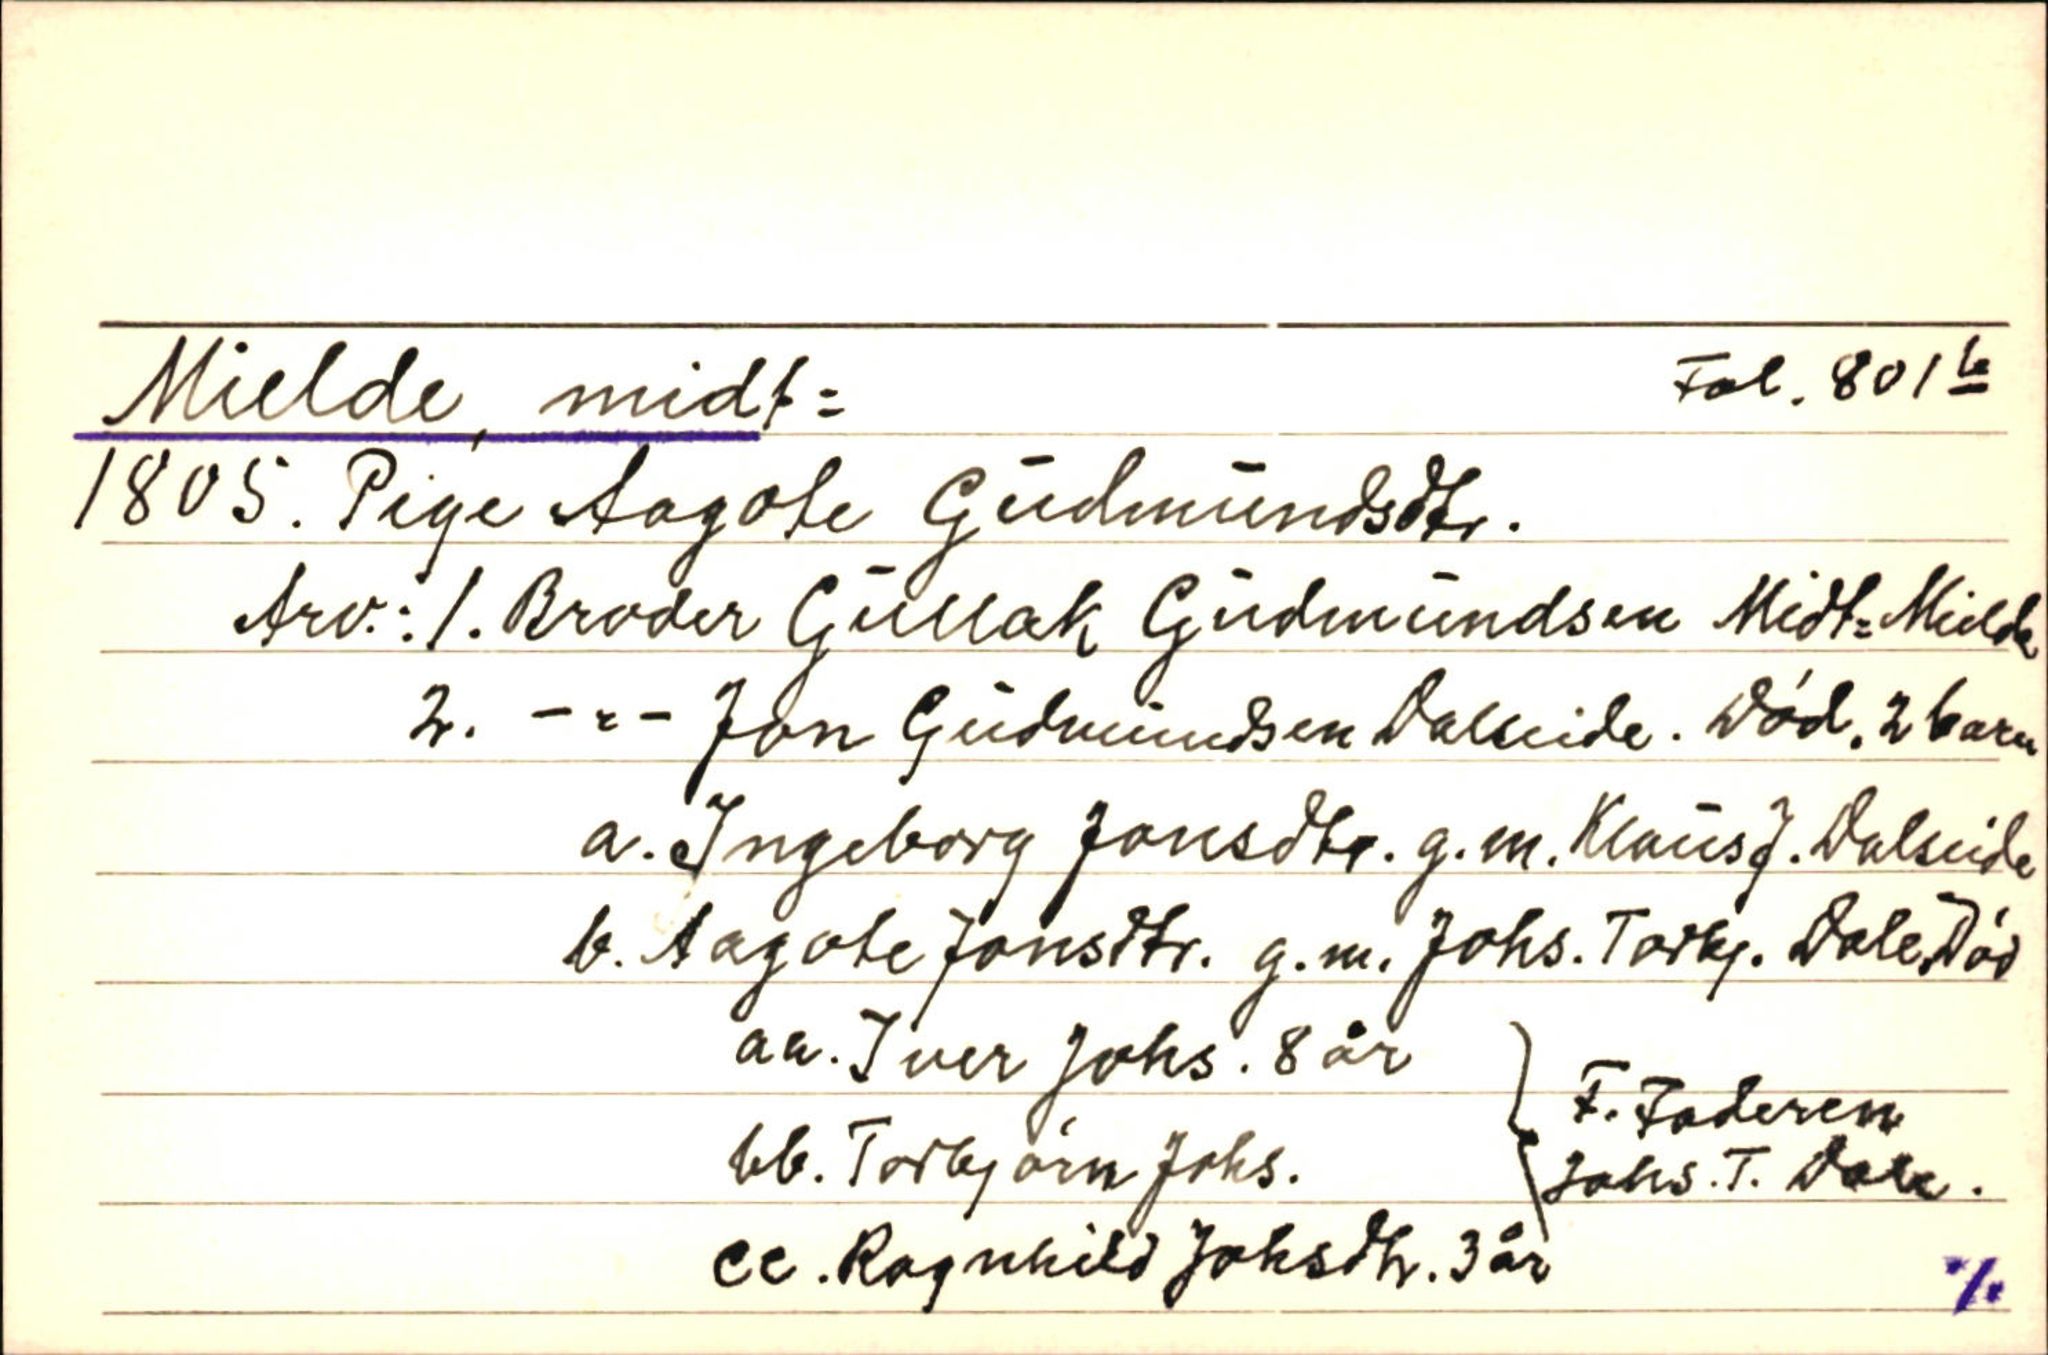 Mielde, midt= Fol. 801b
1805. Pige Aagote Gudmundsdtr.
Arv.: 1. Broder Gullak Gudmundsen Midt=Mielde
2. -"- Jon Gudmundsen Dalseide. Död. 2 barn
a. Ingeborg Jonsdtr. g.m. Klaus J. Dalseide
b. Aagote Jonsdtr. g.m. Johs. Torbj. Dale. Död
aa. Iver Johs. 8 år
bb. Torbjörn Johs.
cc. Ragnhild Johsdtr. 3 år
F. Faderen
Johs. T. Dale.
./.